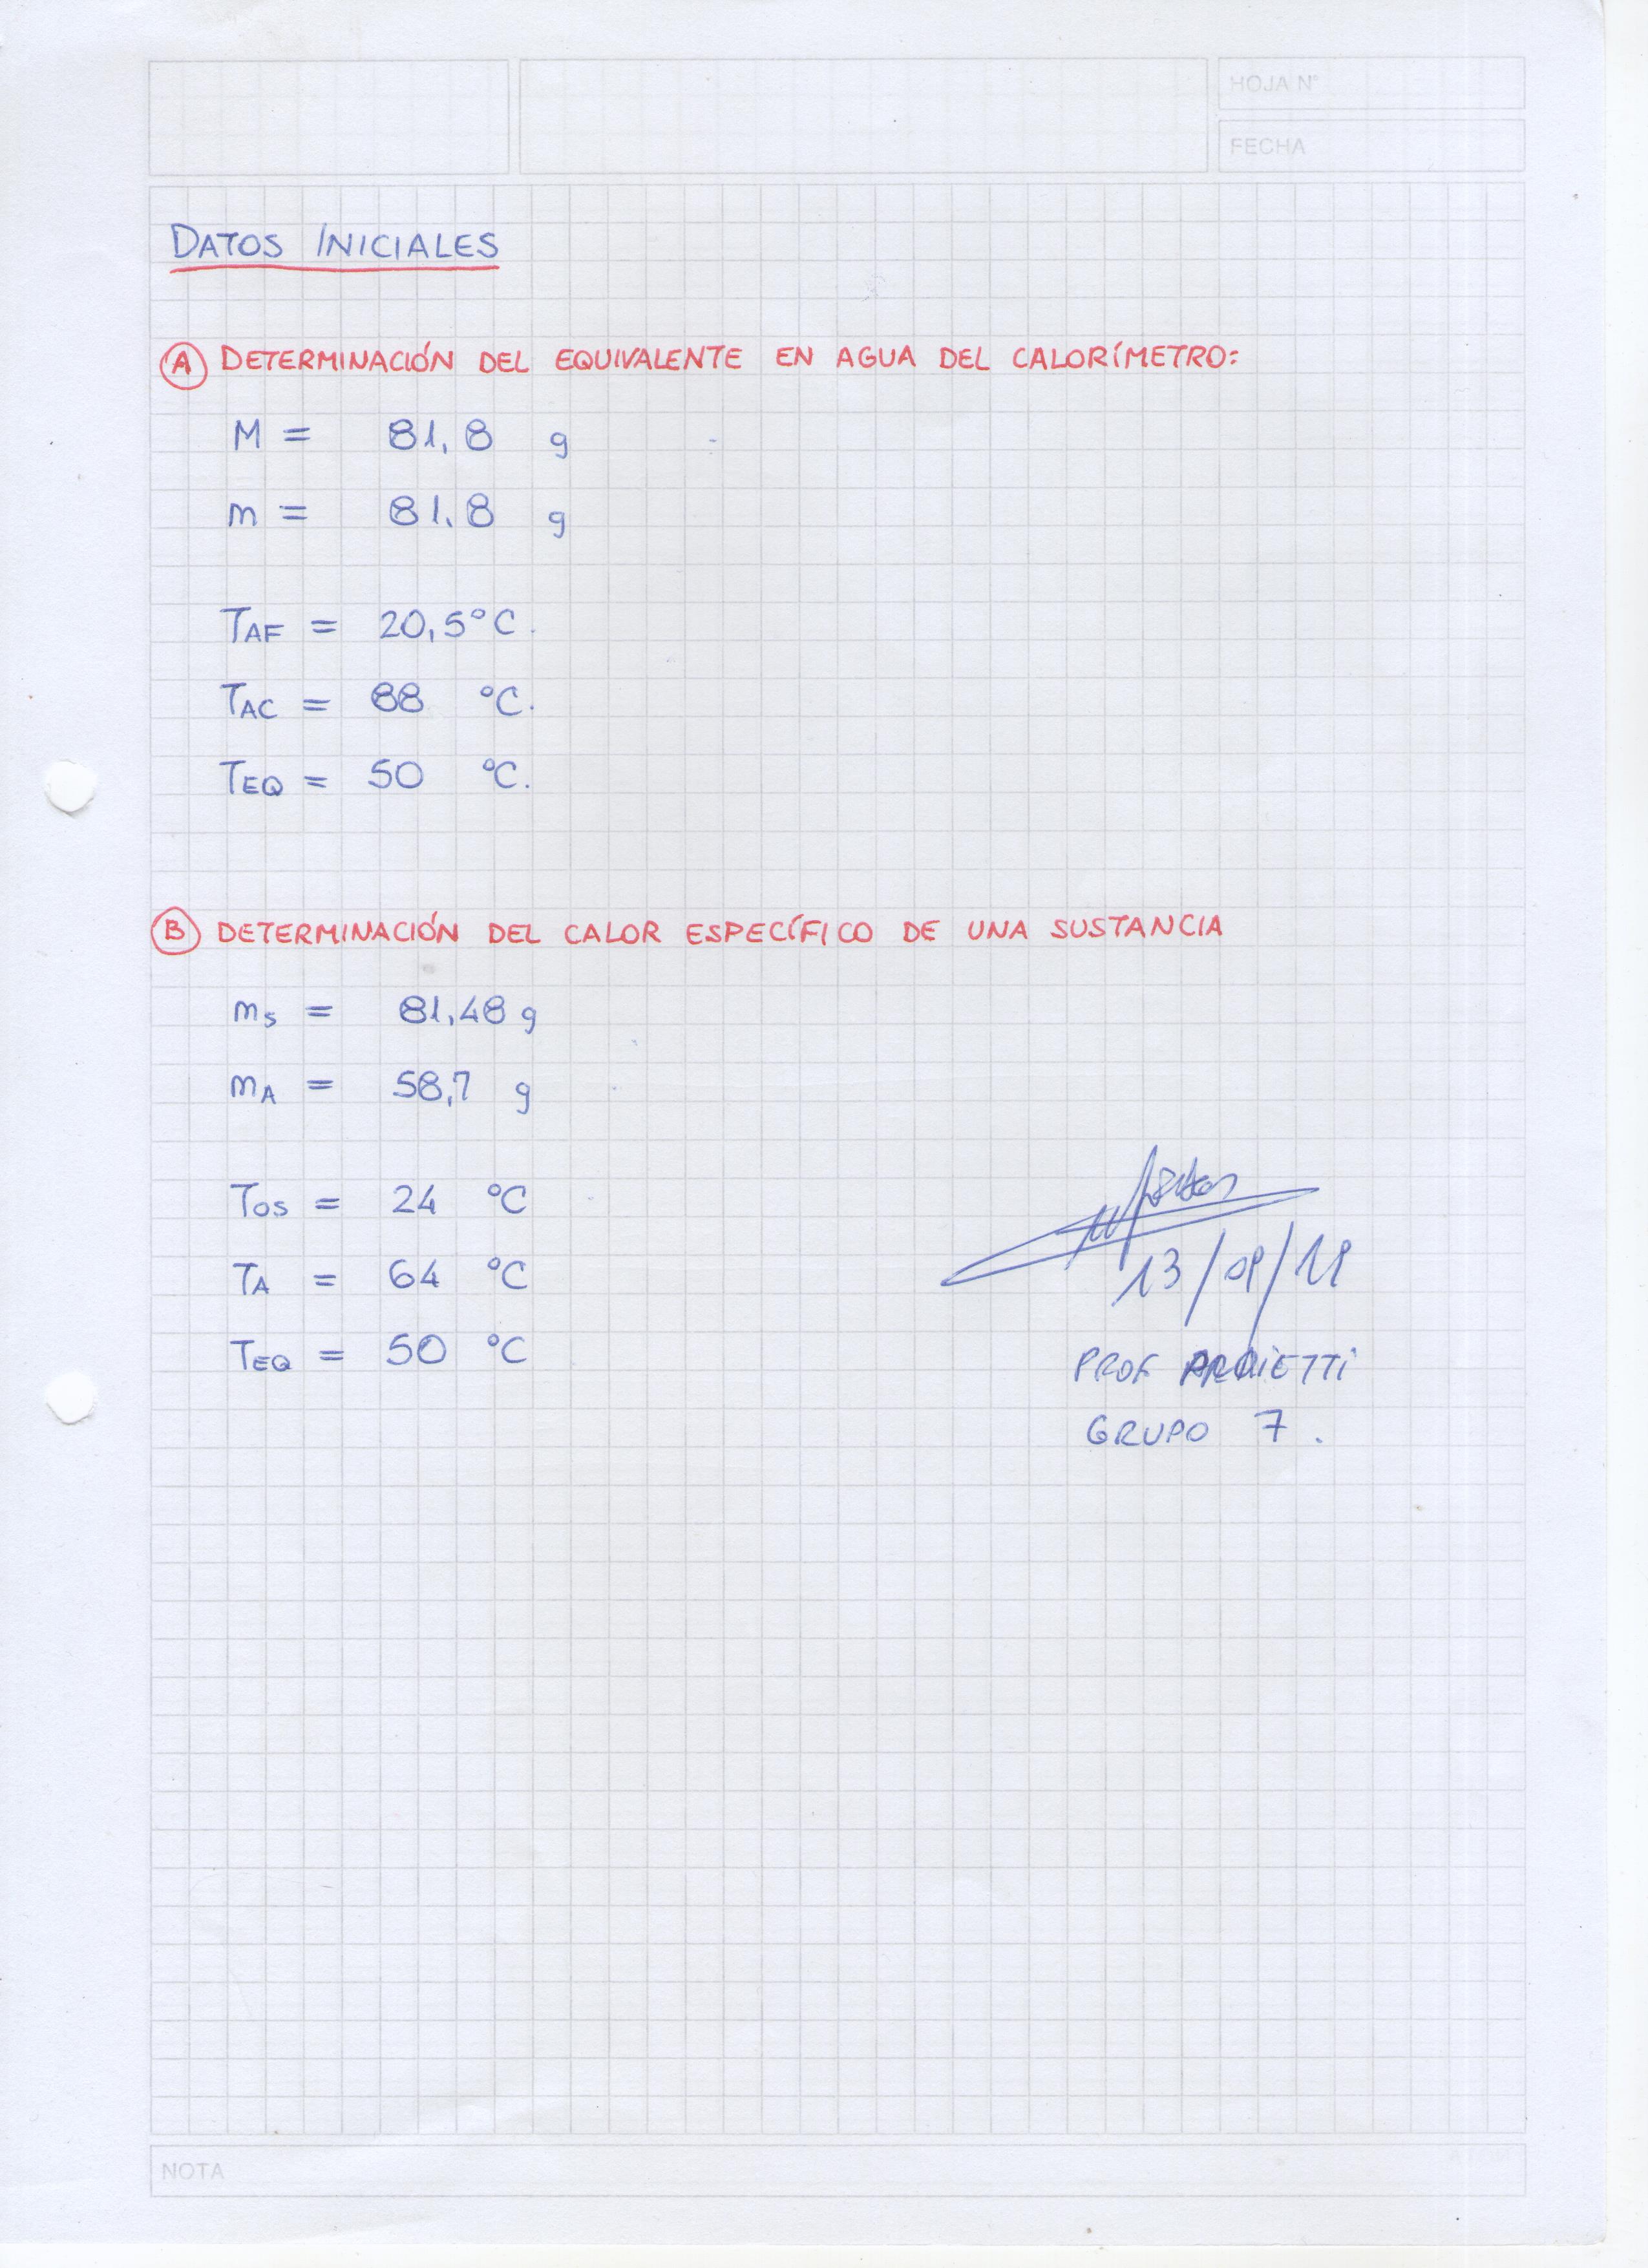 HOJA N°
FECHA
DATOS INICIALES
A DETERMINACIÓN DEL EQUIVALENTE EN AGUA DEL CALORÍMETRO:
M = 81,8 g
m = 81,8 g
TAF = 20,5°C.
TAC = 88 °C.
TEQ = 50 °C.
B DETERMINACIÓN DEL CALOR ESPECÍFICO DE UNA SUSTANCIA
ms = 81,48 g
mA = 58,7 g
Tos = 24 °C
TA = 64 °C
TEQ = 50 °C
13/09/11
PROF
GRUPO 7.
NOTA